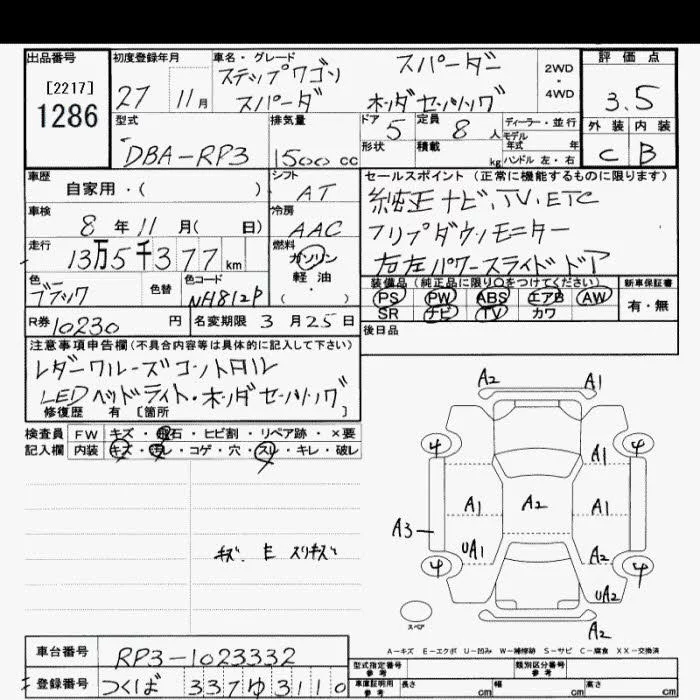 出品番号 初度登録年月 車名・グレード 評価点
[2217] 27 11月 ステップワゴン スパーダー 2WD・4WD 3.5
1286 スパーダ ホンダセンシング 外装 内装
型式 排気量 ドア 5 定員 8人 ディーラー・並行 C B
DBA-RP3 1500cc 形状 積載 kg モデル年式 年式 ハンドル 左・右
車歴 シフト セールスポイント (正常に機能するものに限ります)
自家用・( ) AT 純正ナビ、TV、ETC
車検 冷房 フリップダウンモニター
8年11月( 日) AAC 右左パワースライドドア
走行 燃料
13万5千377km ガソリン・軽油( ・ ) 装備品 (純正品に限り○をつけてください) 新車保証書
色 色替 色コード PS PW ABS エアB AW 有・無
ブラック NH812P SR ナビ TV カワ
R券 10230円 名変期限 3月25日 後日品
注意事項申告欄(不具合内容等は具体的に記入して下さい)
レダークルーズコントロル
LEDヘッドライト・ホンダセンシング
修復歴 有 [箇所 ]
検査員 FW キズ・飛石・ヒビ割・リペア跡・×要
記入欄 内装 キズ・汚レ・コゲ・穴・スレ・キレ・破レ
A2 A1
4 4
A1
A1 A2 A1
A3
UA1 A2
4 4
UA2
スペア A2
キズ、E スリキズ
A-キズ E-エクボ U-凹み W-補修跡 S-サビ C-腐食 XX-交換済
車台番号 RP3-1023332 型式指定番号 参考 類別区分番号 参考
登録番号 つくば 337ゆ3110 車庫証明用 参考 長さ cm 幅 cm 高さ cm